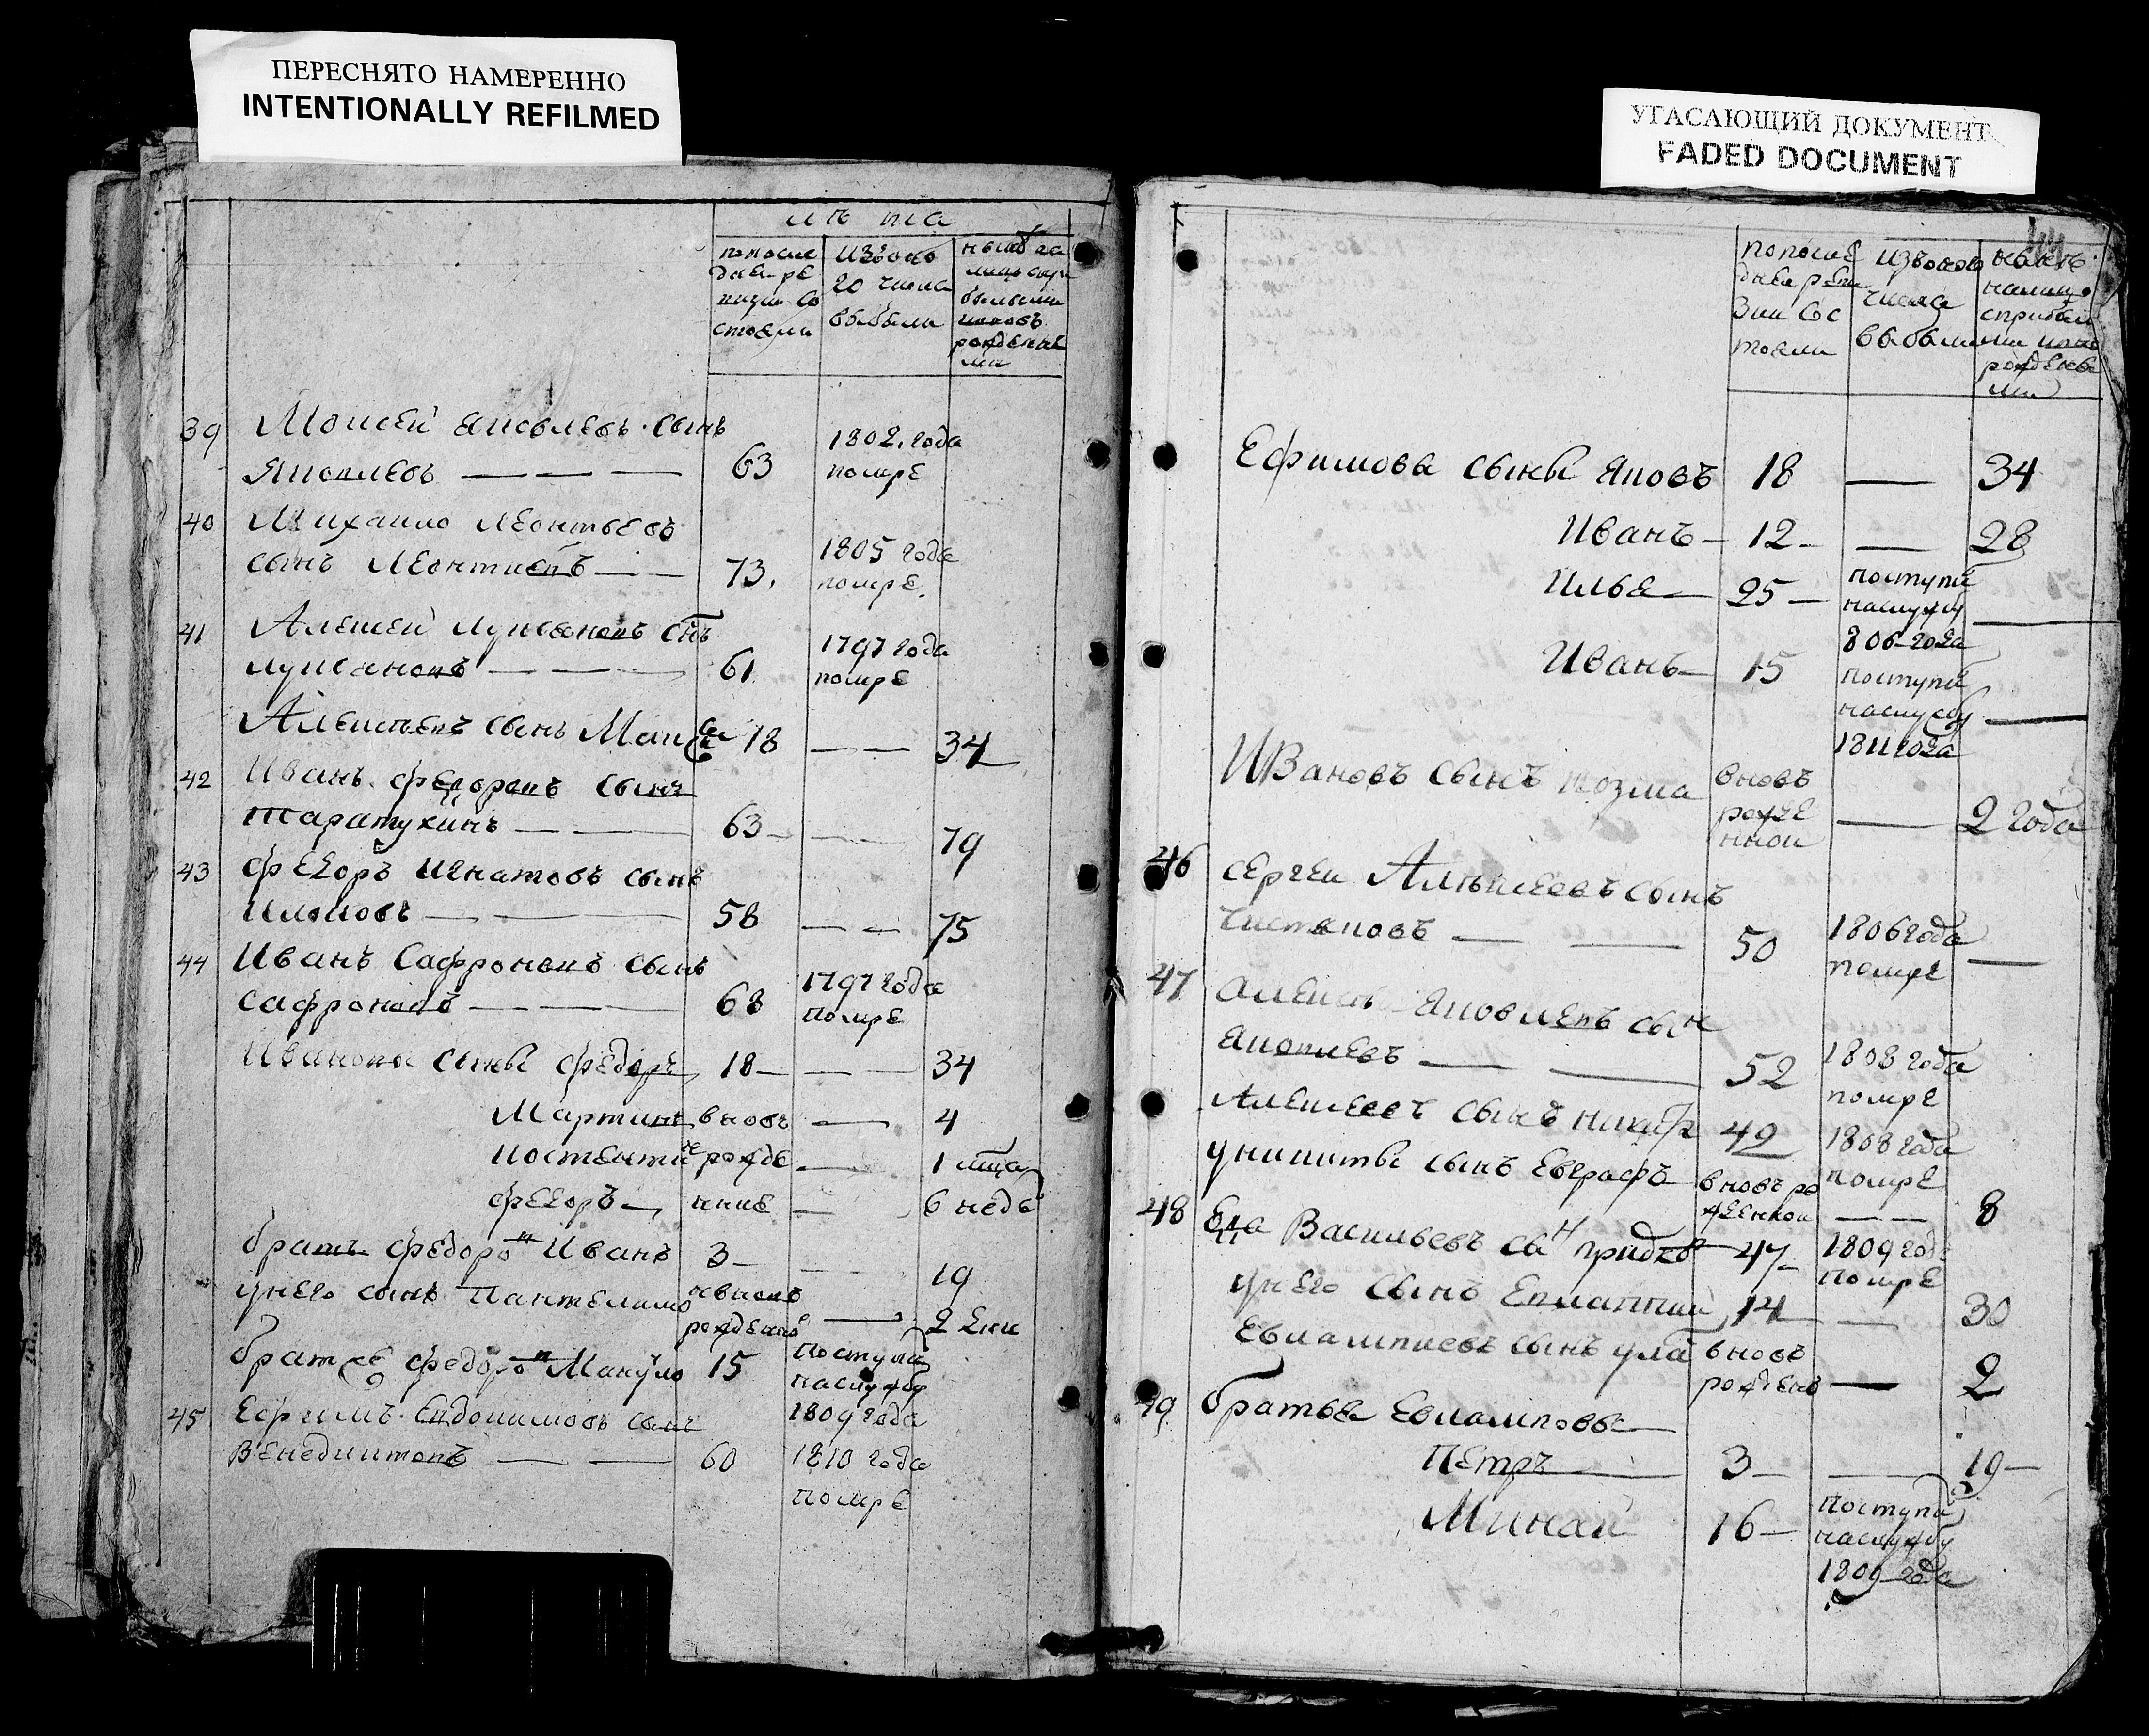 ПЕРЕСНЯТО НАМЕРЕННО
INTENTIONALLY REFILMED
УГАСАЮЩИЙ ДОКУМЕНТ
FADED DOCUMENT
лѣта
попосле
дней ре
визии со
стояли
изъоно
го числа
выбыли
рожденные
ми
39 Моисей Яковлевъ сынъ
Яковлевъ — — — 63 1802. года
помре
40 Михаило Леонтьевъ
сынъ Леонтиевъ — — 73. 1805 года
помре.
41 Алексей Лукьяновъ снъ
Лукьяновъ — — — 61 1797 года
помре
Алексѣевъ сынъ 18 — — 34
42 Иванъ Федоровъ сынъ
Таратухинъ — — 63 — — 79
43 Федоръ Игнатовъ сынъ
Илюновъ — — 58 — — 75
44 Иванъ Сафроновъ сынъ
Сафроновъ — — — 68 1797 года
помре
Ивановы сыны Федоръ 18 — — — 34
Мартинъ вновь — 4
Костентинъ рожде — 1 мца
Федоръ — нние — 6 недѣ
братъ Федоровъ Иванъ 3 — — 19
унего сынъ Пантелимо вновь
рожденной — 2 дни
братъ Федоровъ Мануйло 15 Поступилъ
наслужбу
1809 года
45 Ефимъ Евдокимовъ сынъ
Венедиктовъ — — 60 1810 года
помре
попослѣ
дней реви
зии сос
тояли
изъоного
числа
выбыли
нынѣ
налицо
рожденны
ми
Ефимовы сыны Яковъ 18 — 34
Иванъ — 12 — — 28
Илья — 25 — поступи
наслужбу
806 года —
Иванъ — 15 поступи
наслужбу
1811 года —
Ивановъ сынъ Козма вновь
рожде
нной — 2 года
46 Сергей Алѣксеевъ сынъ
Чистяковъ — — 50 1806 года
помре —
47 Алексей Яковлевъ сын
Яковлевъ — — 52 1808 года
помре
Алексеевъ сынъ Никита 49 1808 года
помре
уникиты сынъ Евграфъ вновь ро
жденной — — 8
48 Васильевъ сынъ 47 — 1809 год
помре
унего сынъ Евлампий 14 — 30
Евлампиевъ сынъ вновь
рожденъ — 2
49 братья Евламповы —
Петръ — 3 — — 19 —
Минай 16 — Поступи
наслужбу
1809 года